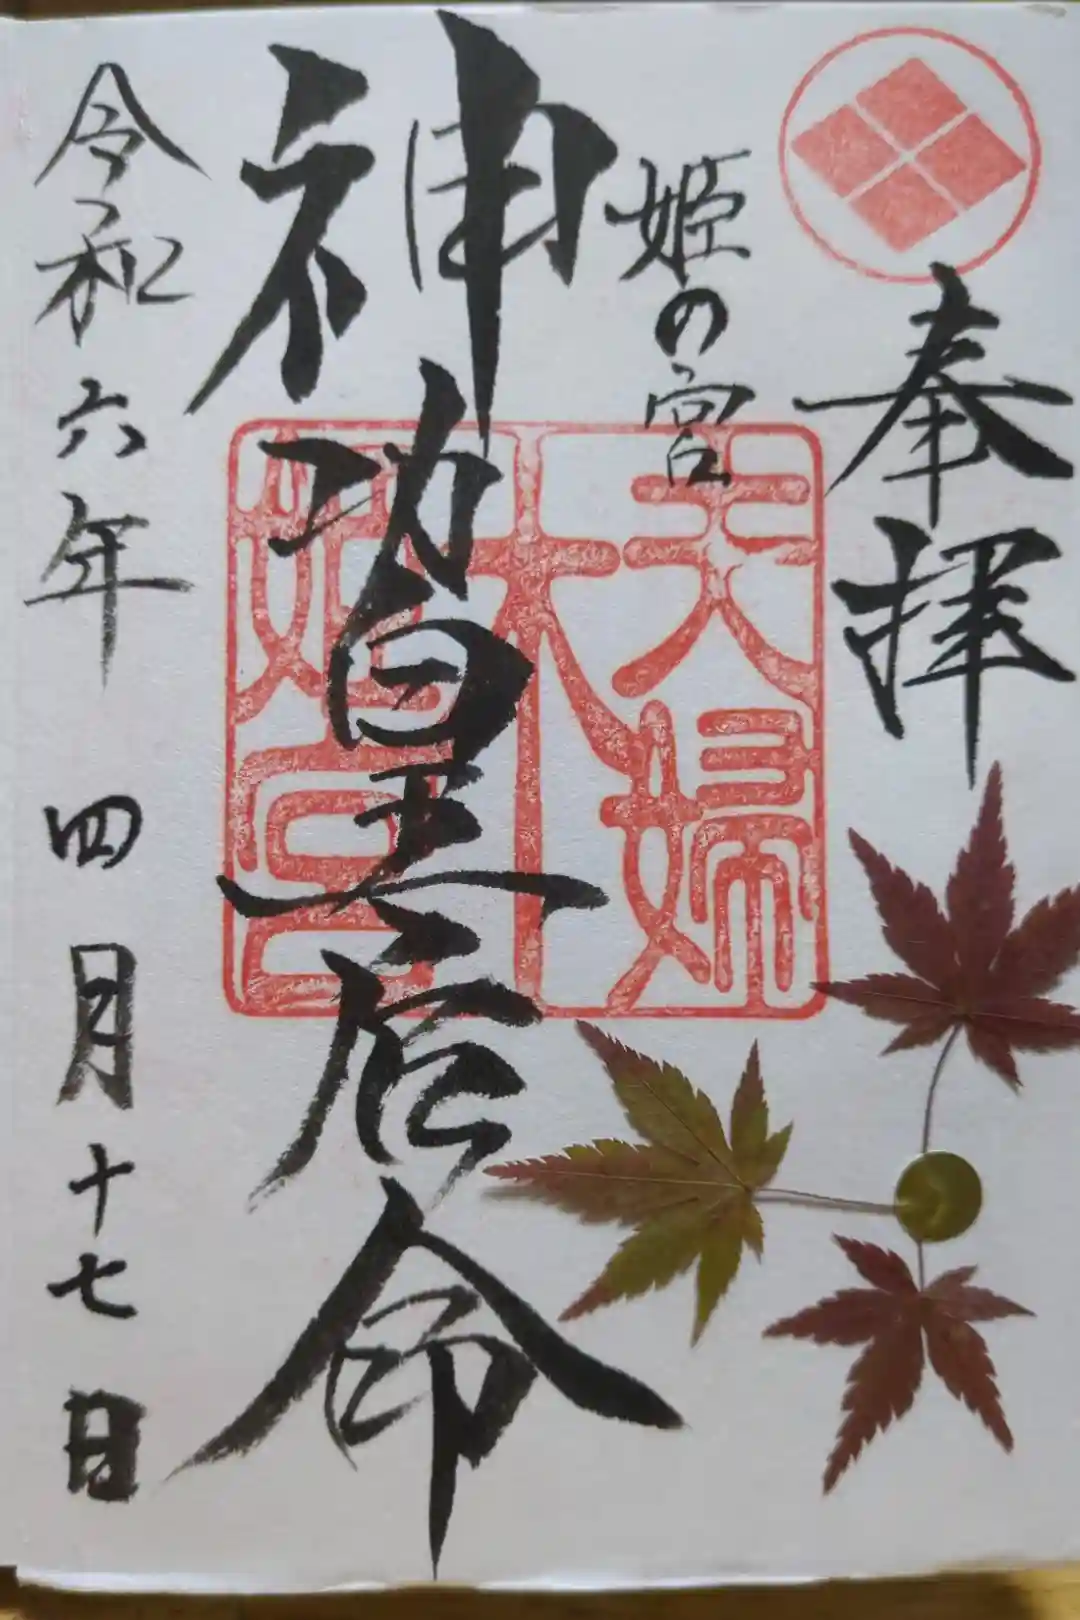 奉拝
姫の宮
神功皇后命
夫婦
大
姫宮
令和六年四月十七日